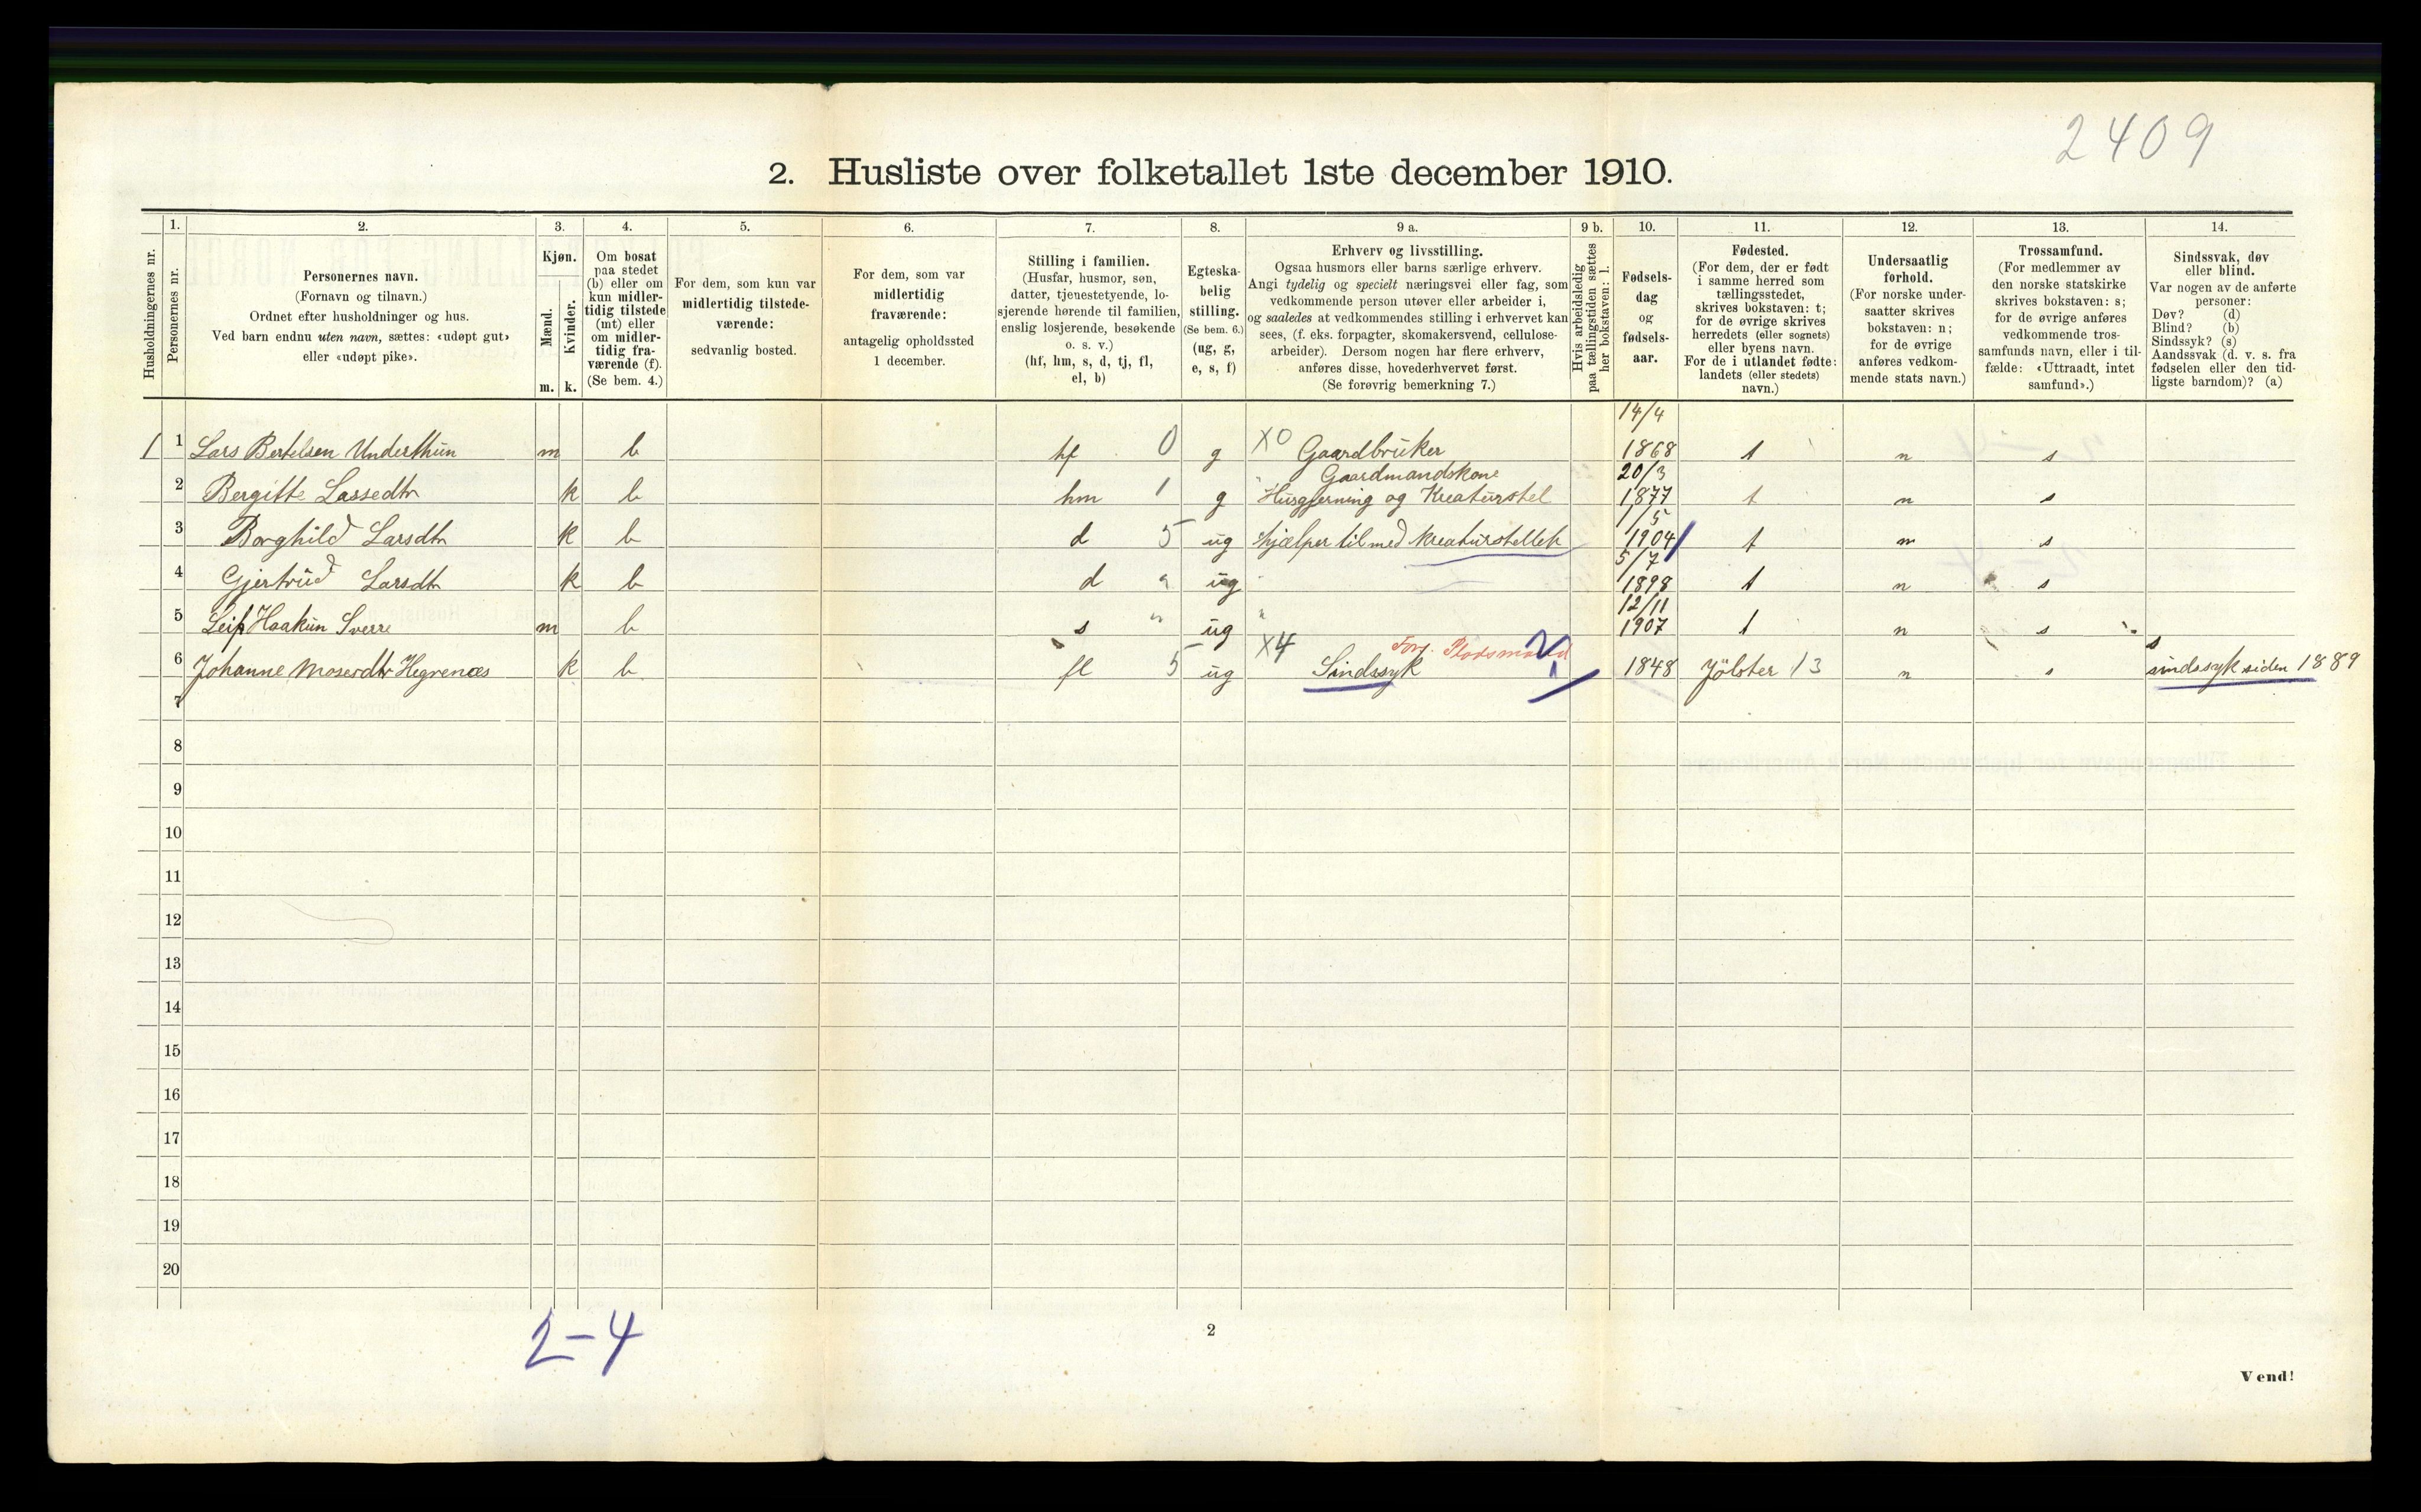 2409
2. Husliste over folketallet 1ste december 1910.
1. 2. 3. 4. 5. 6. 7. 8. 9 a. 9 b. 10. 11. 12. 13. 14.
Husholdningernes nr.
Personernes nr.
Personernes navn.
(Fornavn og tilnavn.)
Ordnet efter husholdninger og hus.
Ved barn endnu uten navn, sættes: «udøpt gut»
eller «udøpt pike».
Kjøn.
Mænd.
Kvinder.
m. k.
Om bosat
paa stedet
(b) eller om
kun midler-
tidig tilstede
(mt) eller
om midler-
tidig fra-
værende (f).
(Se bem. 4.)
For dem, som kun var
midlertidig tilstede-
værende:
sedvanlig bosted.
For dem, som var
midlertidig
fraværende:
antagelig opholdssted
1 december.
Stilling i familien.
(Husfar, husmor, søn,
datter, tjenestetyende, lo-
sjerende hørende til familien,
enslig losjerende, besøkende
o. s. v.)
(hf, hm, s, d, tj, fl,
el, b)
Egteska-
belig
stilling.
(Se bem. 6.)
(ug, g,
e, s, f)
Erhverv og livsstilling.
Ogsaa husmors eller barns særlige erhverv.
Angi tydelig og specielt næringsvei eller fag, som
vedkommende person utøver eller arbeider i,
og saaledes at vedkommendes stilling i erhvervet kan
sees, (f. eks. forpagter, skomakersvend, cellulose-
arbeider). Dersom nogen har flere erhverv,
anføres disse, hovederhvervet først.
(Se forøvrig bemerkning 7.)
Hvis arbeidsledig
paa tællingstiden sættes
her bokstaven: l.
Fødsels-
dag
og
fødsels-
aar.
Fødested.
(For dem, der er født
i samme herred som
tællingsstedet,
skrives bokstaven: t;
for de øvrige skrives
herredets (eller sognets)
eller byens navn.
For de i utlandet fødte:
landets (eller stedets)
navn.)
Undersaatlig
forhold.
(For norske under-
saatter skrives
bokstaven: n;
for de øvrige
anføres vedkom-
mende stats navn.)
Trossamfund.
(For medlemmer av
den norske statskirke
skrives bokstaven: s;
for de øvrige anføres
vedkommende tros-
samfunds navn, eller i til-
fælde: «Uttraadt, intet
samfund».)
Sindssvak, døv
eller blind.
Var nogen av de anførte
personer:
Døv? (d)
Blind? (b)
Sindssyk? (s)
Aandssvak (d. v. s. fra
fødselen eller den tid-
ligste barndom)? (a)
14/4
1 1 Lars Bertelsen Underthun m b hf 0 g X0 Gaardbruker 1868 t n s
Gaardmandskone 20/3
2 Bergitte Lassedtr k b hm 1 g Husgjerning og Kreaturstel 1877 t n s
1/5
3 Borghild Larsdtr k b d 5 ug hjælper til med kreaturstellet 1904 t n s
5/7
4 Gjertrud Larsdtr k b d " ug " 1898 t n s
12/11
5 Leif Haakun Sverre m b s " ug " 1907 t n s
X4 Fors. s
6 Johanne Mosesdtr Hegrenæs k b fl 5 ug Sindssyk 1848 Jölster 13 n s sindssyk siden 1889
7
8
9
10
11
12
13
14
15
16
17
18
19
20
2-4
2
Vend!